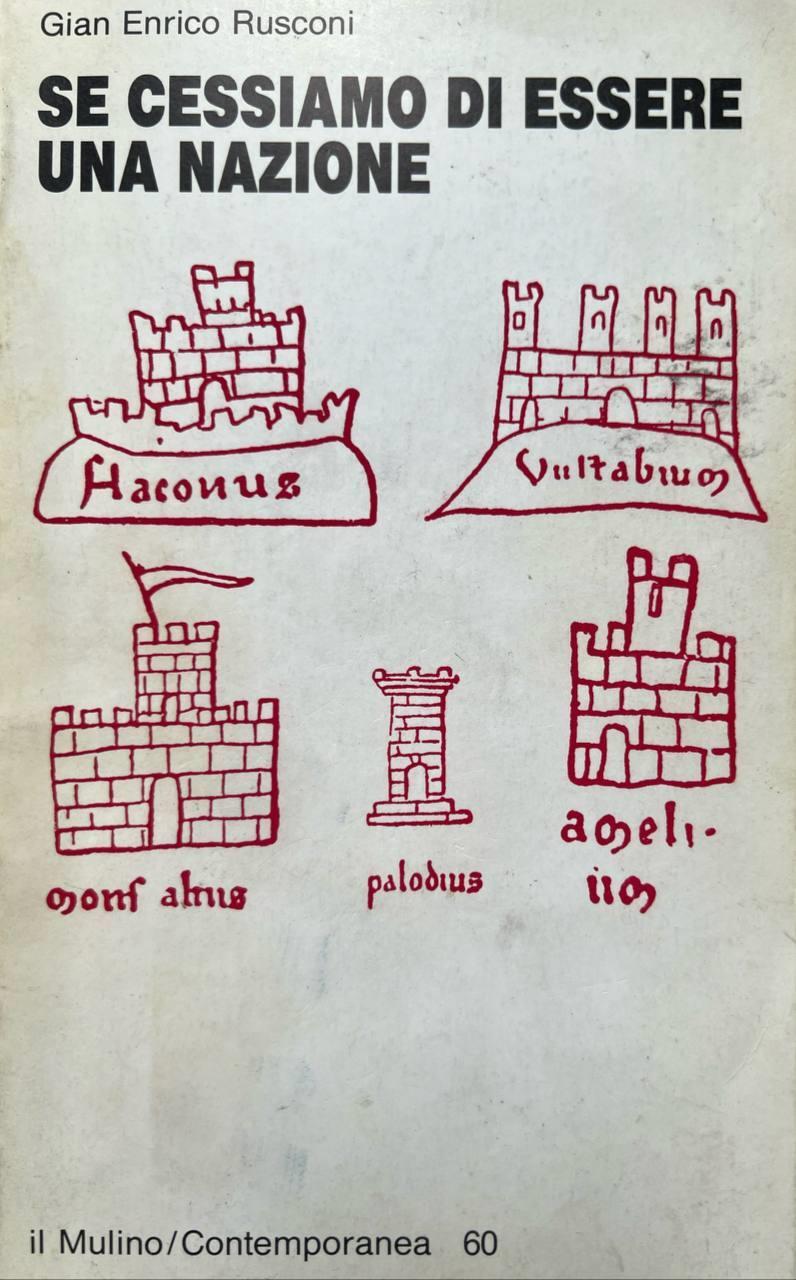 Gian Enrico Rusconi
SE CESSIAMO DI ESSERE
UNA NAZIONE
flaconus
Vultabium
mons altus
palodius
ameli·
um
il Mulino/Contemporanea 60